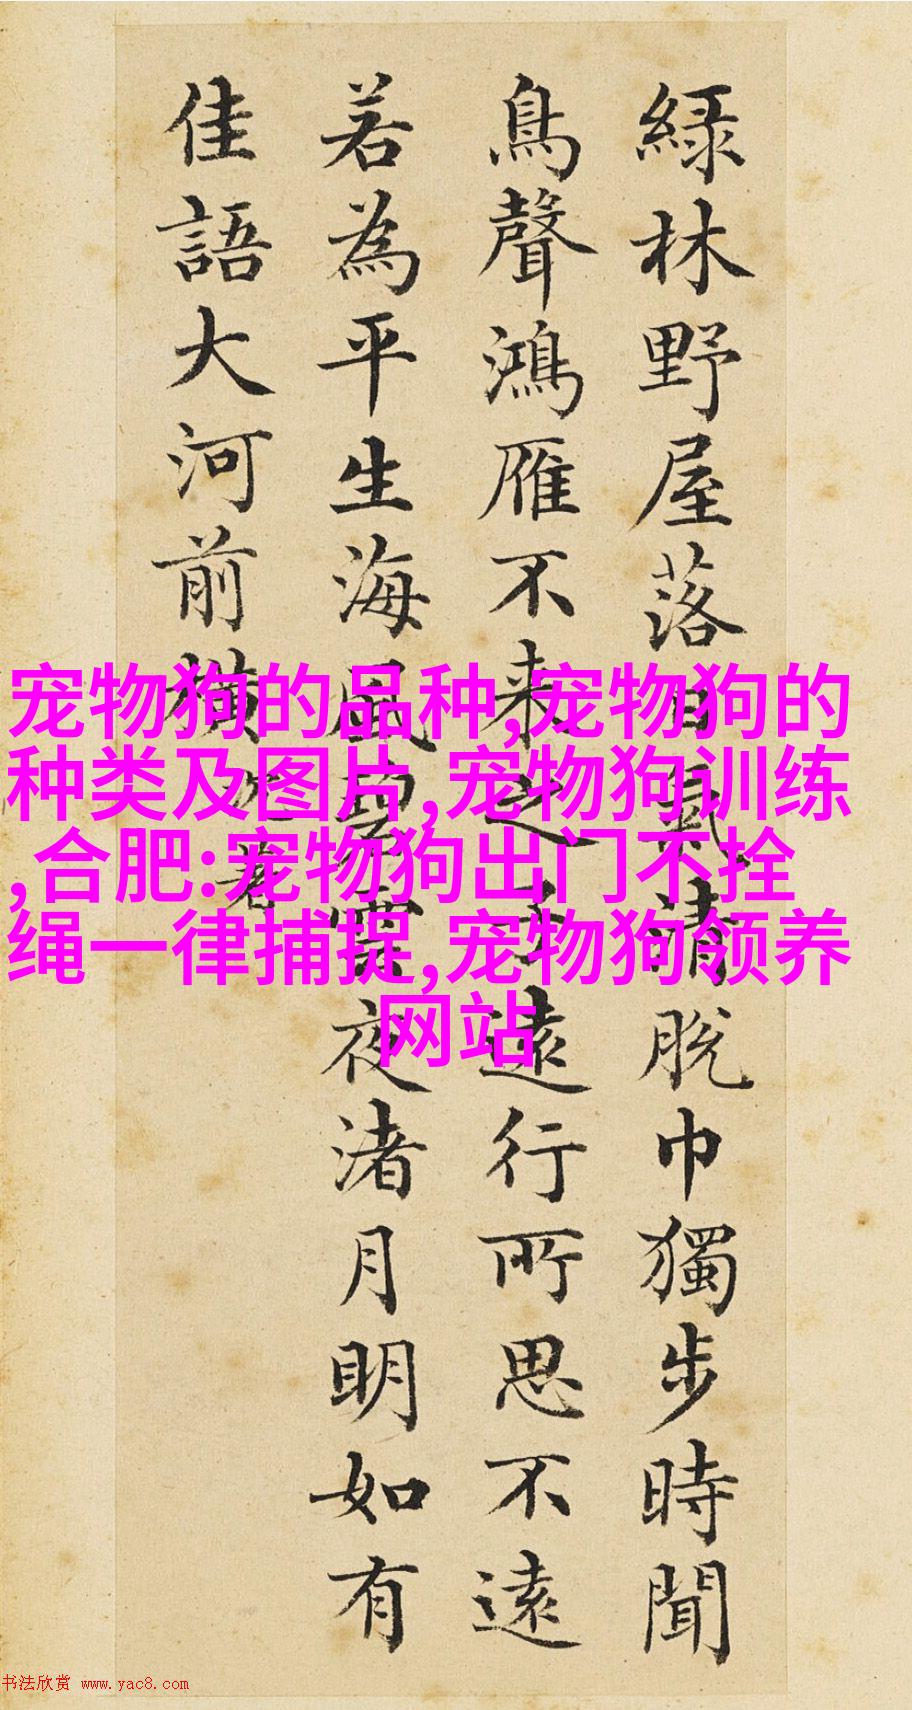 綠林野屋落日氣清脫巾獨步時聞
鳥聲鴻雁不來之子遠行所思不遠
若為平生海風碧雲夜渚月明如有
佳語大河前橫
宠物狗的品种,宠物狗的
种类及图片,宠物狗训练
,合肥:宠物狗出门不拴
绳一律捕捉,宠物狗领养
网站
书法欣赏 www.yac8.com